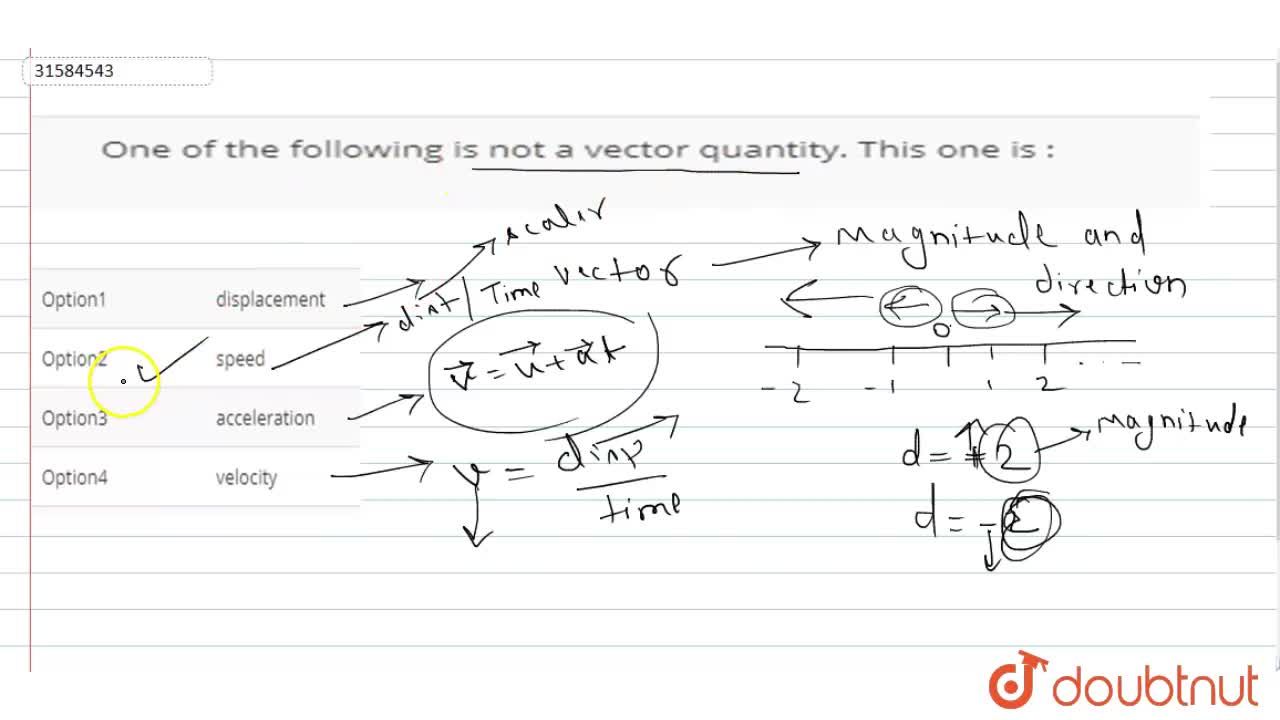 31584543
One of the following is not a vector quantity. This one is :
scalar
magnitude and
direction
dist / Time
vector
Option1 displacement
Option2 speed
Option3 acceleration
Option4 velocity
v = u + at
v = disp
time
0
-2 -1 1 2 . . . -
d = + 2
magnitude
d = - 2
doubtnut